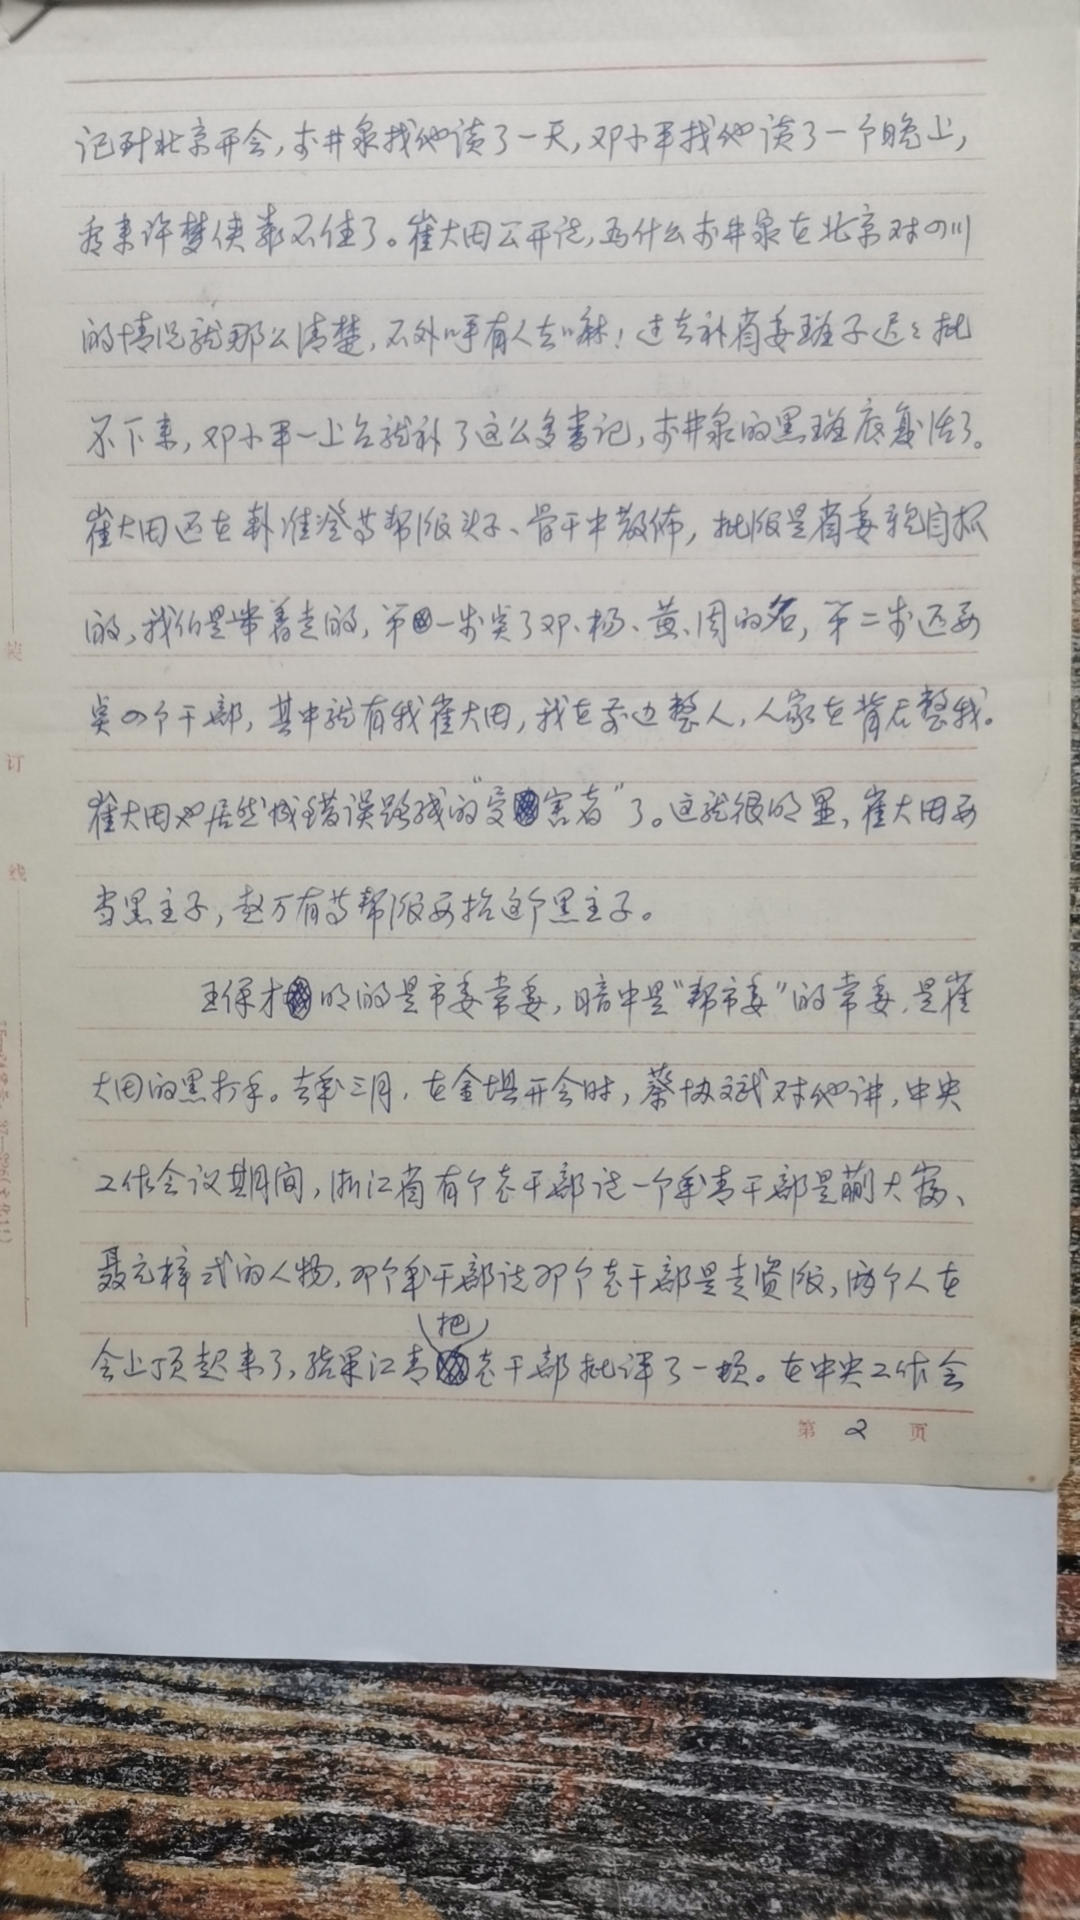 记到北京开会，李井泉找他谈了一天，邓小平找他谈了一个晚上，
看来许梦侠靠不住了。崔大田公开说，为什么李井泉在北京对四川
的情况就那么清楚，不外乎有人去嘛！过去补省委班子迟迟批
不下来，邓小平一上台就补了这么多书记，李井泉的黑班底复活了。
崔大田还在 帮派头子、骨干中散佈，批派是省委亲自抓
的，我们是带着走的，第一步点了邓、杨、黄、周的名，第二步还要
点四个干部，其中就有我崔大田，我在前边整人，人家在背后整我。
崔大田也居然成错误路线的“受害者”了。这就很明显，崔大田要
当黑主子，赵万有等帮派要抬这个黑主子。
王保才明的是市委常委，暗中是“帮市委”的常委，是崔
大田的黑打手。去年三月，在金堤开会时，蔡协斌对他讲，中央
工作会议期间，浙江省有个老干部说一个年青干部是蒯大富、
聂元梓式的人物，那个年干部说那个老干部是走资派，两个人在
会上顶起来了，结果江青把老干部批评了一顿。在中央工作会
第 2 页
装
订
线